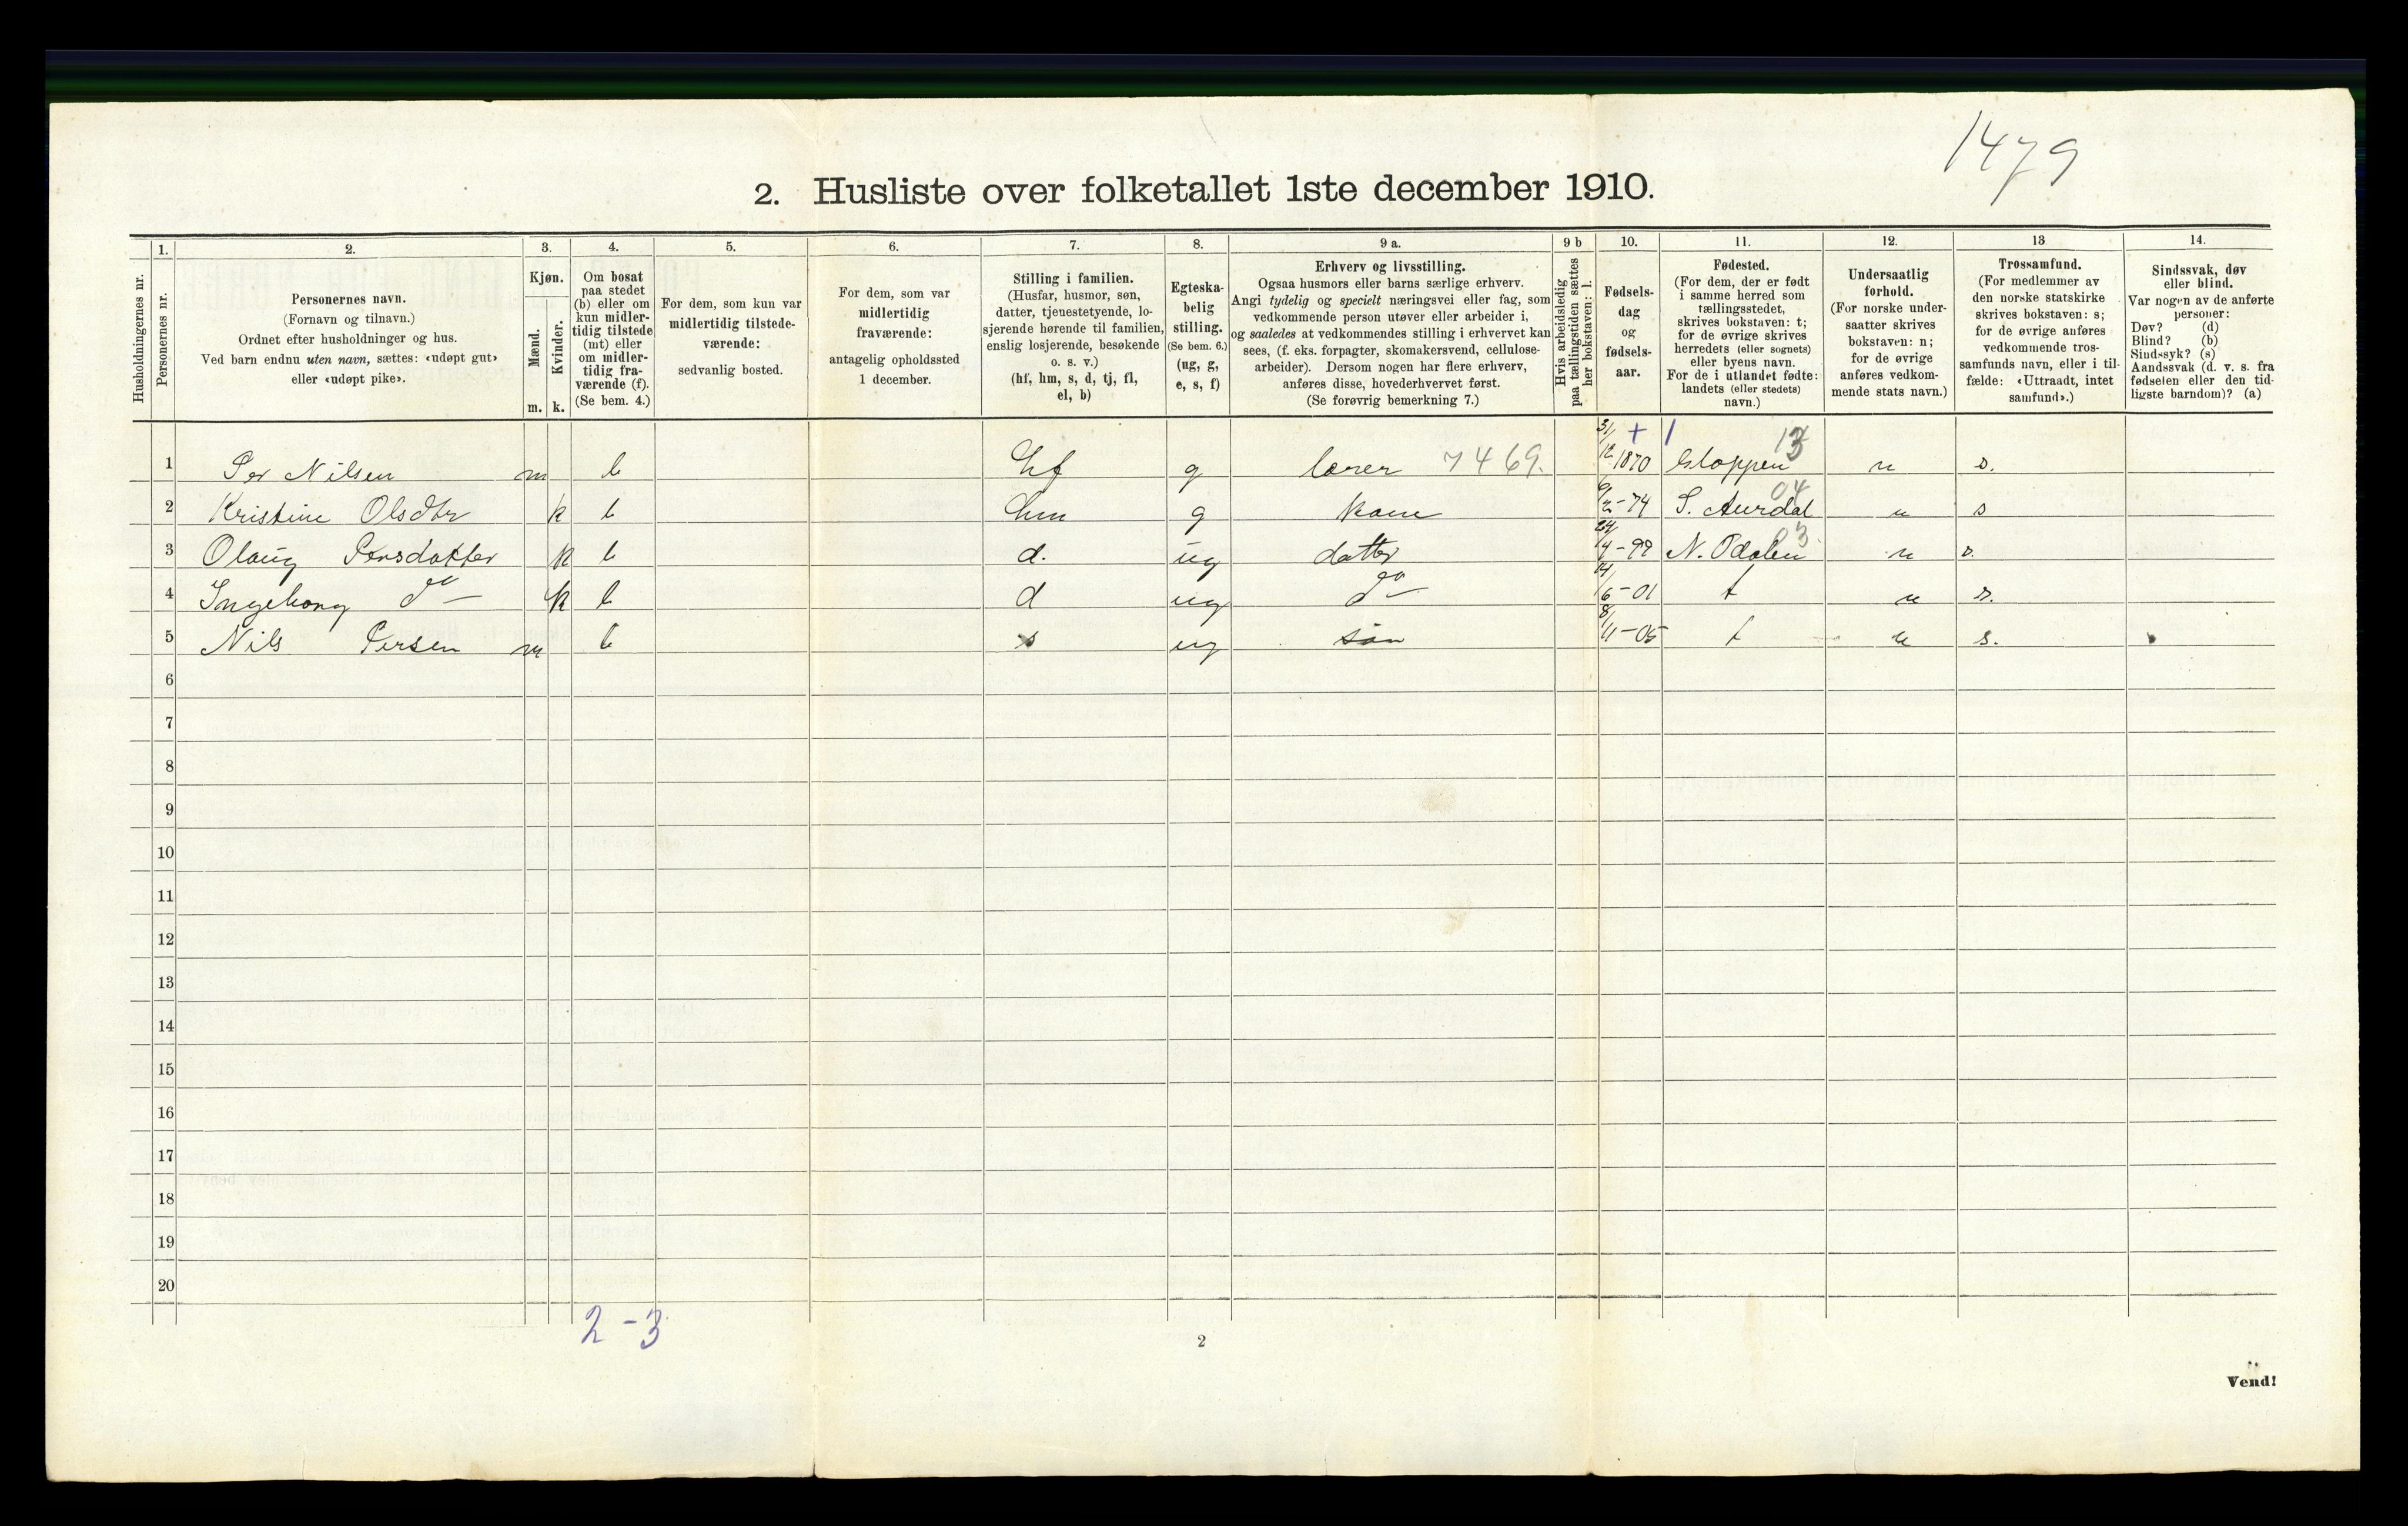 1479
2. Husliste over folketallet 1ste december 1910.
1. 2. 3. 4. 5. 6. 7. 8. 9 a. 9 b 10. 11. 12. 13 14.
Husholdningernes nr.
Personernes nr.
Personernes navn.
(Fornavn og tilnavn.)
Ordnet efter husholdninger og hus.
Ved barn endnu uten navn, sættes: «udøpt gut»
eller «udøpt pike».
Kjøn.
Mænd.
Kvinder.
m. k.
Om bosat
paa stedet
(b) eller om
kun midler-
tidig tilstede
(mt) eller
om midler-
tidig fra-
værende (f).
(Se bem. 4.)
For dem, som kun var
midlertidig tilstede-
værende:
sedvanlig bosted.
For dem, som var
midlertidig
fraværende:
antagelig opholdssted
1 december.
Stilling i familien.
(Husfar, husmor, søn,
datter, tjenestetyende, lo-
sjerende hørende til familien,
enslig losjerende, besøkende
o. s. v.)
(hf, hm, s, d, tj, fl,
el, b)
Egteska-
belig
stilling.
(Se bem. 6.)
(ug, g,
e, s, f)
Erhverv og livsstilling.
Ogsaa husmors eller barns særlige erhverv.
Angi tydelig og specielt næringsvei eller fag, som
vedkommende person utøver eller arbeider i,
og saaledes at vedkommendes stilling i erhvervet kan
sees, (f. eks. forpagter, skomakersvend, cellulose-
arbeider). Dersom nogen har flere erhverv,
anføres disse, hovederhvervet først.
(Se forøvrig bemerkning 7.)
Hvis arbeidsledig
paa tællingstiden sættes
her bokstaven: l.
Fødsels-
dag
og
fødsels-
aar.
Fødested.
(For dem, der er født
i samme herred som
tællingsstedet,
skrives bokstaven: t;
for de øvrige skrives
herredets (eller sognets)
eller byens navn.
For de i utlandet fødte:
landets (eller stedets)
navn.)
Undersaatlig
forhold.
(For norske under-
saatter skrives
bokstaven: n;
for de øvrige
anføres vedkom-
mende stats navn.)
Trossamfund.
(For medlemmer av
den norske statskirke
skrives bokstaven: s;
for de øvrige anføres
vedkommende tros-
samfunds navn, eller i til-
fælde: «Uttraadt, intet
samfund».)
Sindssvak, døv
eller blind.
Var nogen av de anførte
personer:
Døv? (d)
Blind? (b)
Sindssyk? (s)
Aandssvak (d. v. s. fra
fødselen eller den tid-
ligste barndom)? (a)
1 Per Nilsen m b hf g lærer 7469. 31/12 1870 + 1 Gloppen 13 n s.
2 Kristine Olsdtr k b hm g kone 9/2-74 S. Aurdal 04 n s
3 Olaug Persdatter k b d. ug datter 24/4-99 N. Odalen 03 n s.
4 Ingeborg do k b d ug do 14/6-01 t n s.
5 Nils Persen m b s ug søn 8/11-05 t n s.
6
7
8
9
10
11
12
13
14
15
16
17
18
19
20
2-3
2
Vend!